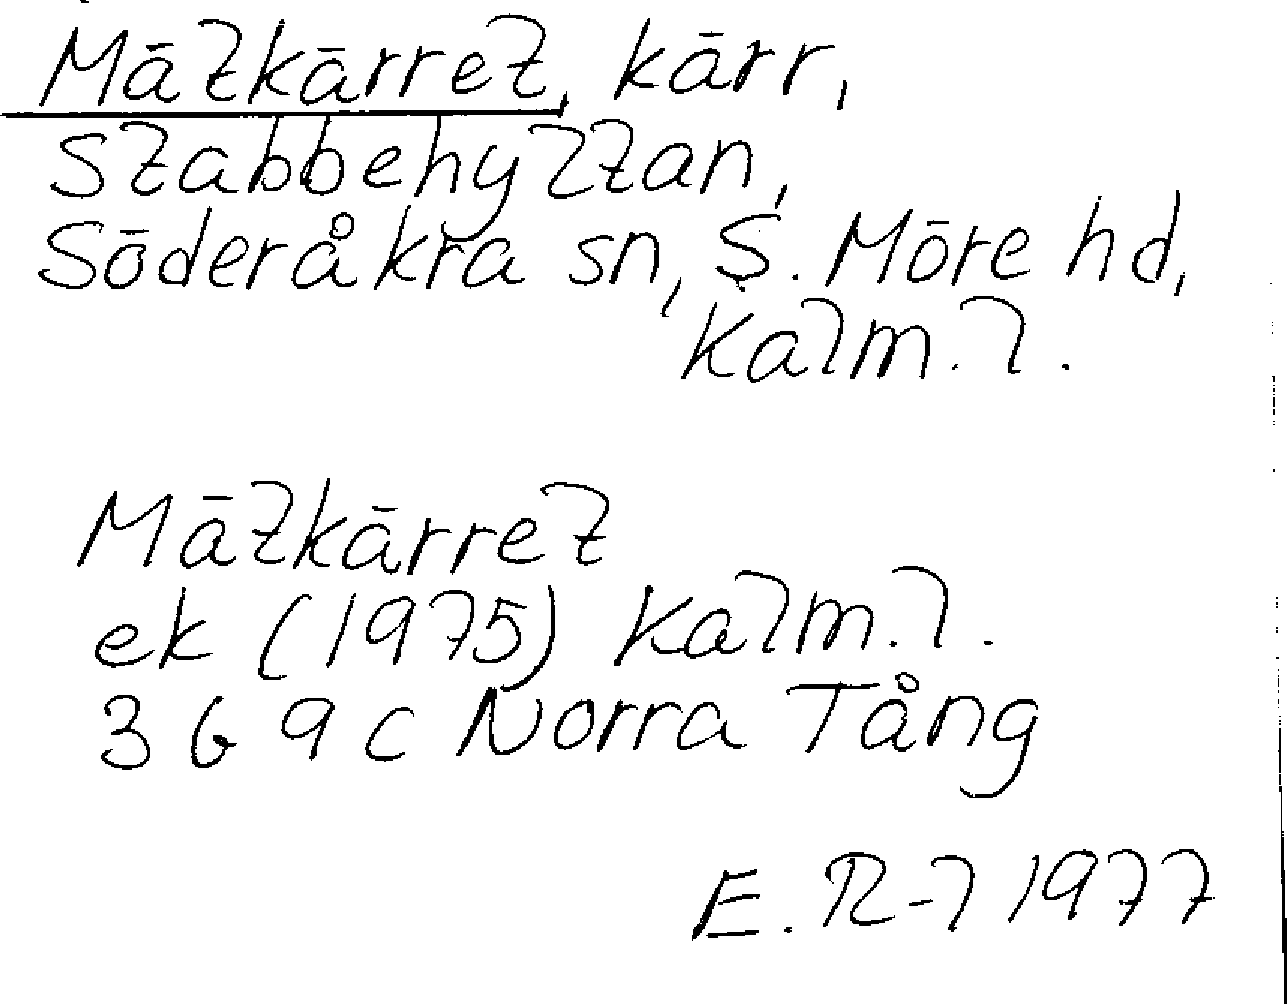 Mätkärret, kärr,
Stabbehyltan,
Söderåkra sn, S. Möre hd,
Kalm. l.
Mätkärret
ek (1975) Kalm. l.
3 G 9 c Norra Tång
E. R-l 1977